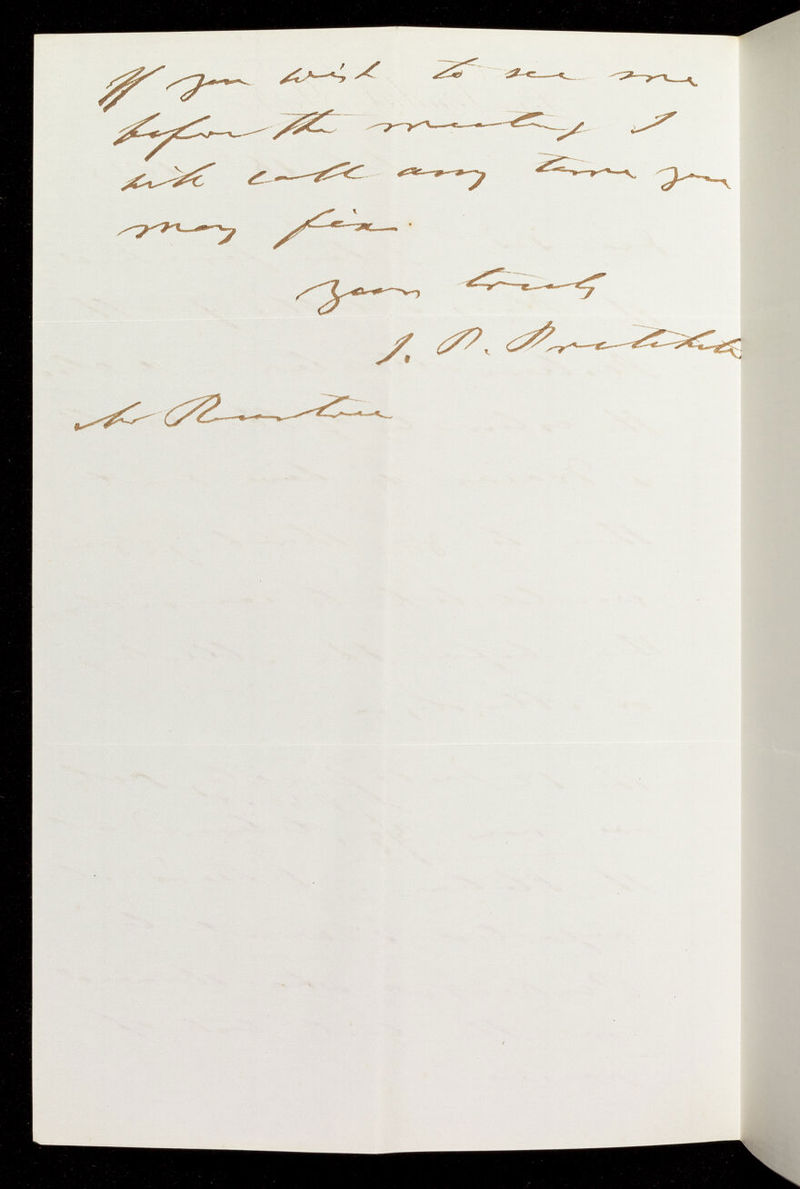 If you wish to see me
before the meeting I
will call any time you
may fix
Yours truly
J. P. Pritchett
Mr Rowntree